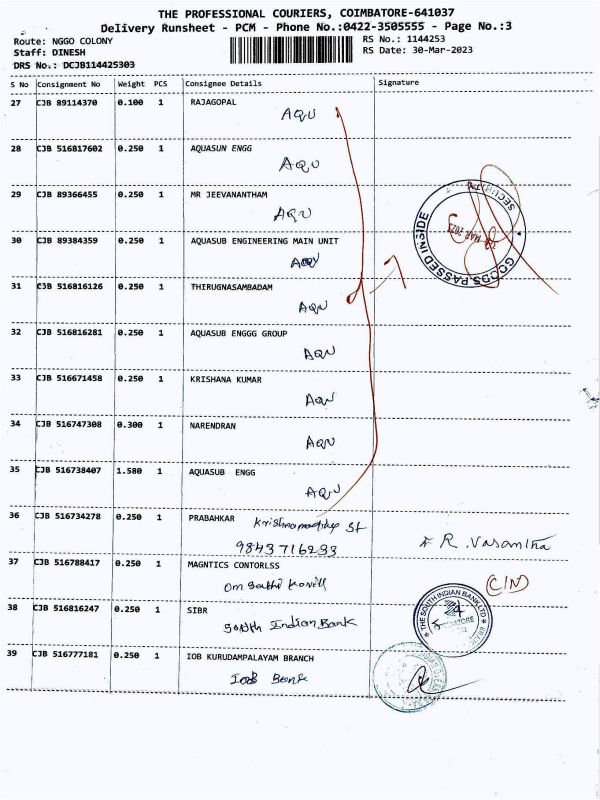 THE PROFESSIONAL COURIERS, COIMBATORE-641037
Delivery Runsheet - PCM - Phone No.:0422-3505555 - Page No.:3
Route: NGGO COLONY
RS No.: 1144253
Staff: DINESH
RS Date: 30-Mar-2023
DRS No.: DCJB114425303
S No Consignment No Weight PCS Consignee Details Signature
27 CJB 89114370 0.100 1 RAJAGOPAL
AQU
28 CJB 516817602 0.250 1 AQUASUN ENGG
AQU
29 CJB 89366455 0.250 1 MR JEEVANANTHAM
AQU
30 CJB 89384359 0.250 1 AQUASUB ENGINEERING MAIN UNIT
AQU
31 CJB 516816126 0.250 1 THIRUGNASAMBADAM
AQU
32 CJB 516816281 0.250 1 AQUASUB ENGGG GROUP
AQU
33 CJB 516671458 0.250 1 KRISHANA KUMAR
AQU
34 CJB 516747308 0.300 1 NARENDRAN
AQU
35 CJB 516738407 1.580 1 AQUASUB ENGG
AQU
SECURITY
MAR 2023
GOODS PASSED INSIDE
36 CJB 516734278 0.250 1 PRABAHKAR
St
9843716233
R. Vasantha
37 CJB 516788417 0.250 1 MAGNTICS CONTORLSS
Om Sakthi Kovill
38 CJB 516816247 0.250 1 SIBR
South Indian Bank
THE SOUTH INDIAN BANK LTD
COIMBATORE
39 CJB 516777181 0.250 1 IOB KURUDAMPALAYAM BRANCH
IOB Bank